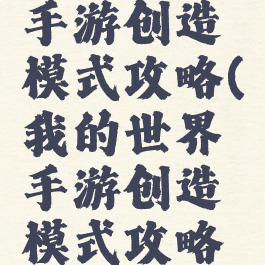 手游创造
模式攻略(
我的世界
手游创造
模式攻略